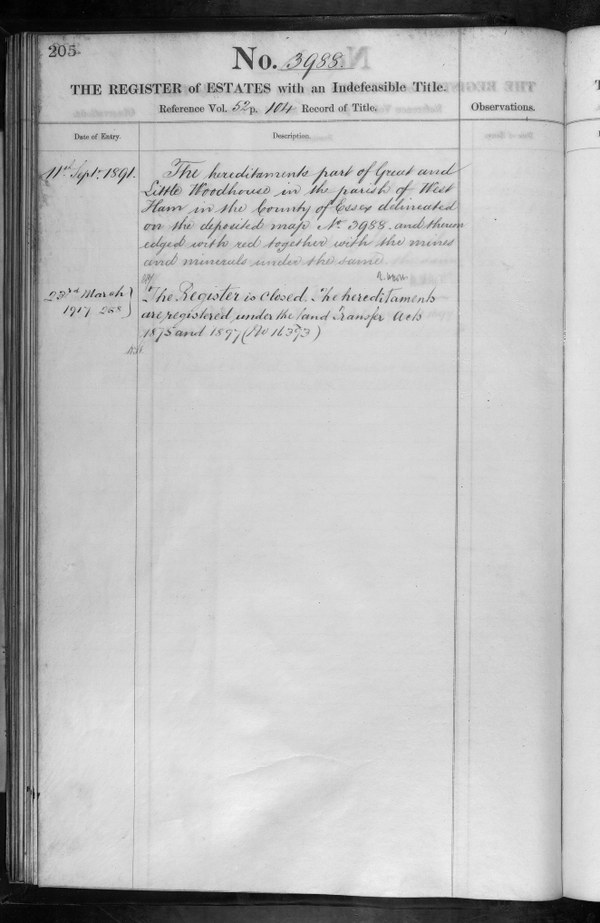 205
No. 3988.
THE REGISTER of ESTATES with an Indefeasible Title.
Reference Vol. 52 p. 104 Record of Title.
Observations.
Date of Entry.
Description.
11th Septr. 1891.
The hereditaments part of Great and
Little Woodhouse in the parish of West
Ham in the County of Essex delineated
on the deposited map No 3988 and thereon
edged with red together with the mines
and minerals under the same
23rd March
1917
The Register is closed. The hereditaments
are registered under the Land Transfer Acts
1875 and 1897 (No 16393)